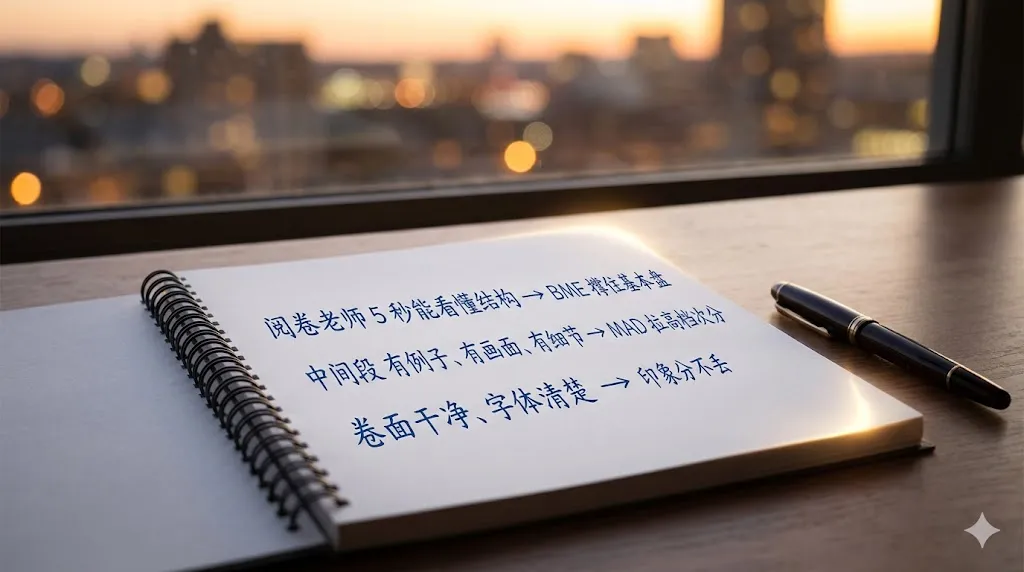 阅卷老师5秒能看懂结构→BME撑住基本盘
中间段有例子、有画面、有细节→MAD拉高档次分
卷面干净、字体清楚→印象分不丢